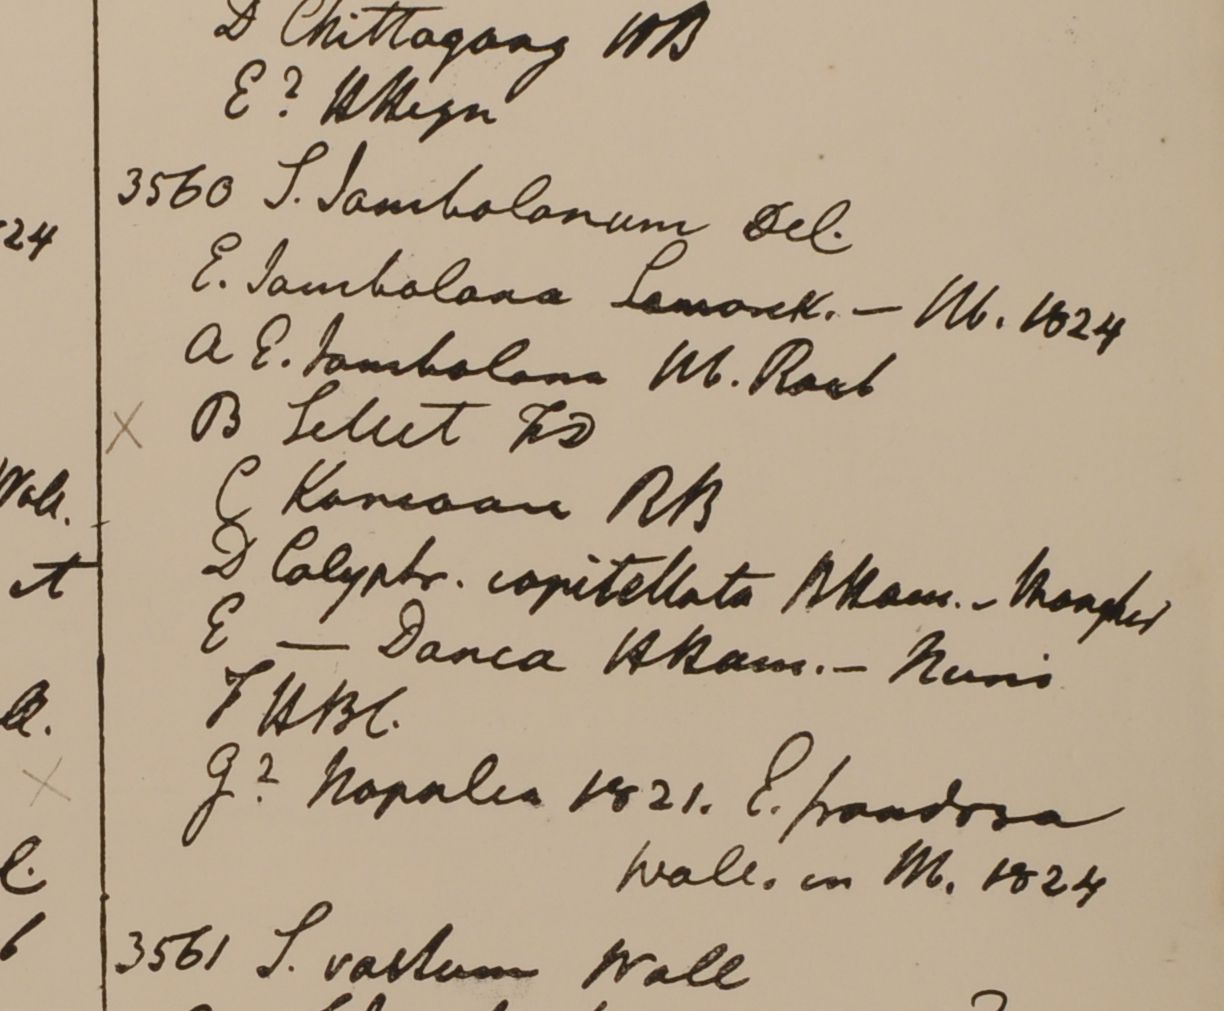 24
Wall.
et
D Chittagong WB
E? HHeyn
3560 S. Jambolanum Del.
E. Jambolana Lamarck. — Hb. 1824
A E. Jambolana Hb. Roxb
B Sillet FD
C RB
D Calyptr. capitellata HHam. –
E — Danca HHam. –
F HBC.
G? Napalia 1821. E. frondosa
Wall. in Hb. 1824
3561 S. Wall